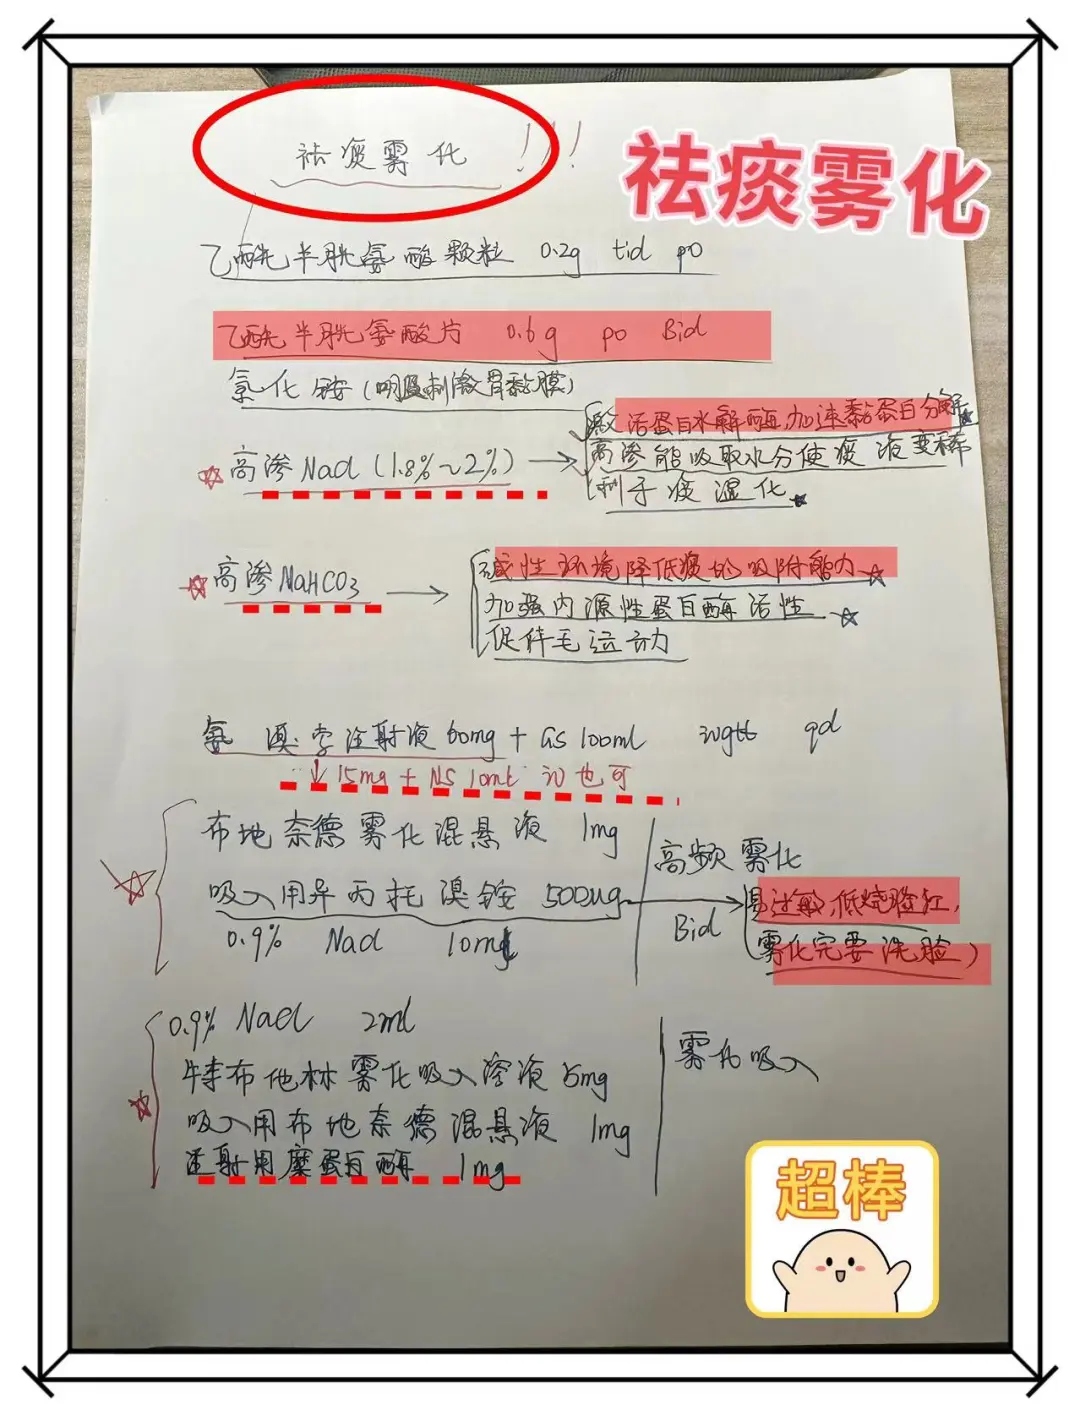 祛痰雾化!!!
祛痰雾化
乙酰半胱氨酸颗粒 0.2g tid po
乙酰半胱氨酸片 0.6g po Bid
氯化铵(明显刺激胃黏膜)
激活蛋白水解酶,加速黏蛋白分解
高渗Nacl(1.8%~2%)
高渗能吸取水分使痰液变稀
利于痰湿化
高渗NaHCO3
碱性环境降低痰的吸附能力
加强内源性蛋白酶活性
促纤毛运动
氨溴索注射液60mg+GS 100ml ivgtt qd
↓15mg+NS 10ml iv也可
布地奈德雾化混悬液 1mg
吸入用异丙托溴铵 500ug
0.9% Nacl 10ml
高频雾化
Bid
易过敏,低烧脸红,
雾化完要洗脸)
0.9% Nacl 2ml
特布他林雾化吸入溶液 5mg
吸入用布地奈德混悬液 1mg
注射用糜蛋白酶 1mg
雾化吸入
超棒